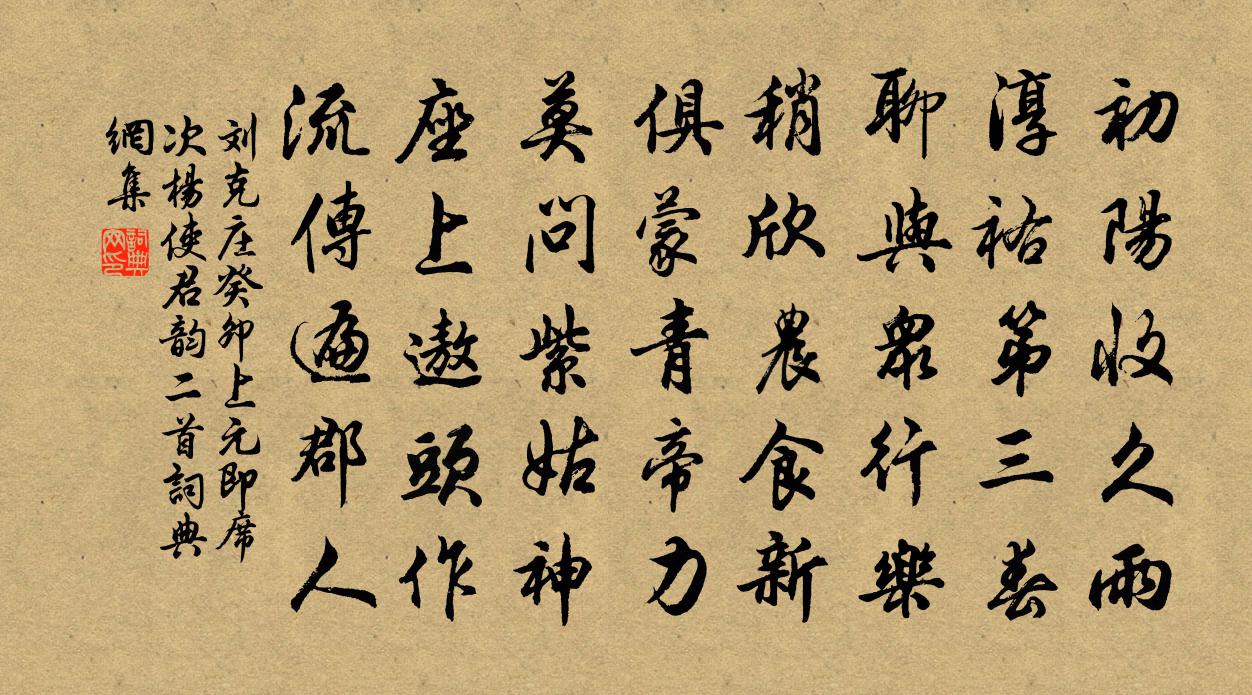 初陽收久雨
淳祐第三春
聊與眾行樂
稍欣農食新
俱蒙青帝力
莫問紫姑神
座上遨頭作
流傳遍郡人
刘克庄癸卯上元即席
次楊使君韵二首詞典
網集
詞典網印